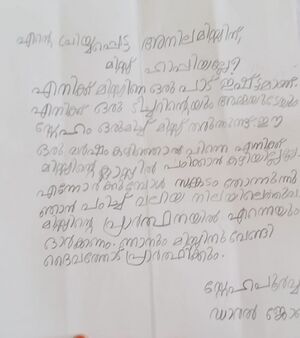 എന്റെ പ്രിയപ്പെട്ട അനിലമിസ്സിന്,
മിസ്സ് ഹാപ്പിയല്ലേ?
എനിക്ക് മിസ്സിനെ ഒരു പാട് ഇഷ്ടമാണ്.
എനിക്ക് ഒരു ടീച്ചറിന്റെയും അമ്മയുടെയും
സ്നേഹം ഒരുമിച്ച് മിസ്സ് തന്നു ഈ
ഒരു വർഷം കഴിഞ്ഞാൽ പിന്നെ എനിക്ക്
മിസ്സിന്റെ ക്ലാസ്സിൽ പഠിക്കാൻ കഴിയില്ലല്ലോ
എന്നോർക്കുമ്പോൾ സങ്കടം തോന്നുന്നു
ഞാൻ പഠിച്ച് വലിയ നിലയിലെത്തും
മിസ്സിന്റെ പ്രാർത്ഥനയിൽ എന്നെയും
ഓർക്കണം. ഞാനും മിസ്സിനു വേണ്ടി
ദൈവത്തോട് പ്രാർത്ഥിക്കും.
സ്നേഹപൂർവ്വ